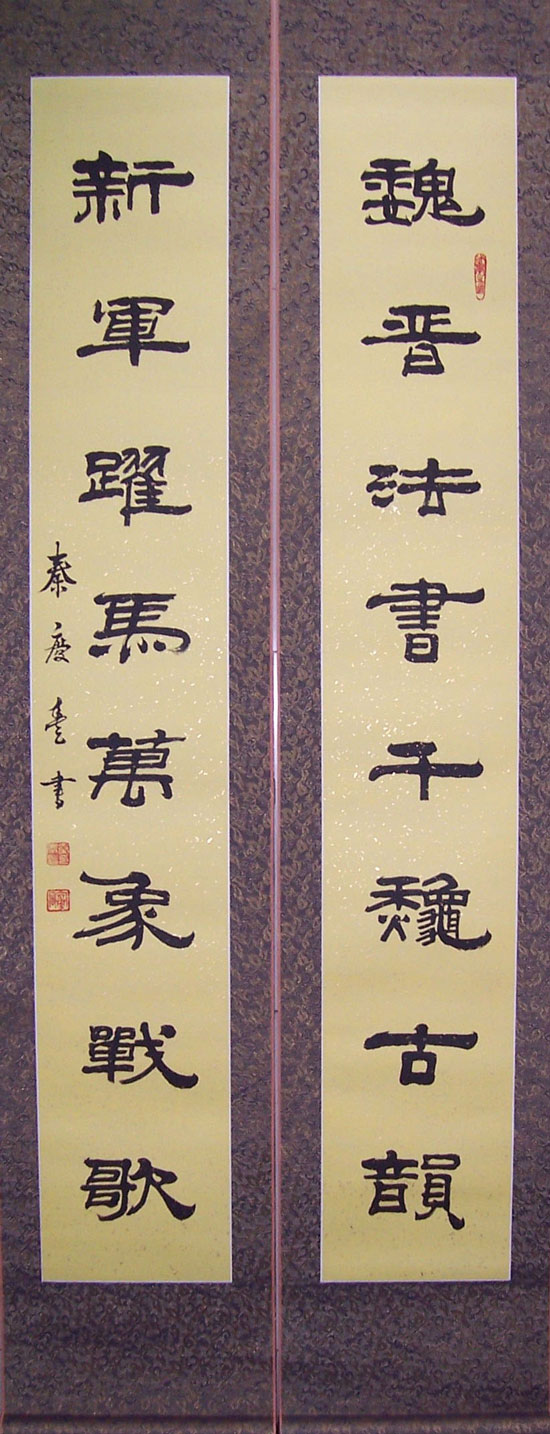 魏晋法書千龝古韻
新軍躍馬萬象戰歌
秦慶雲書